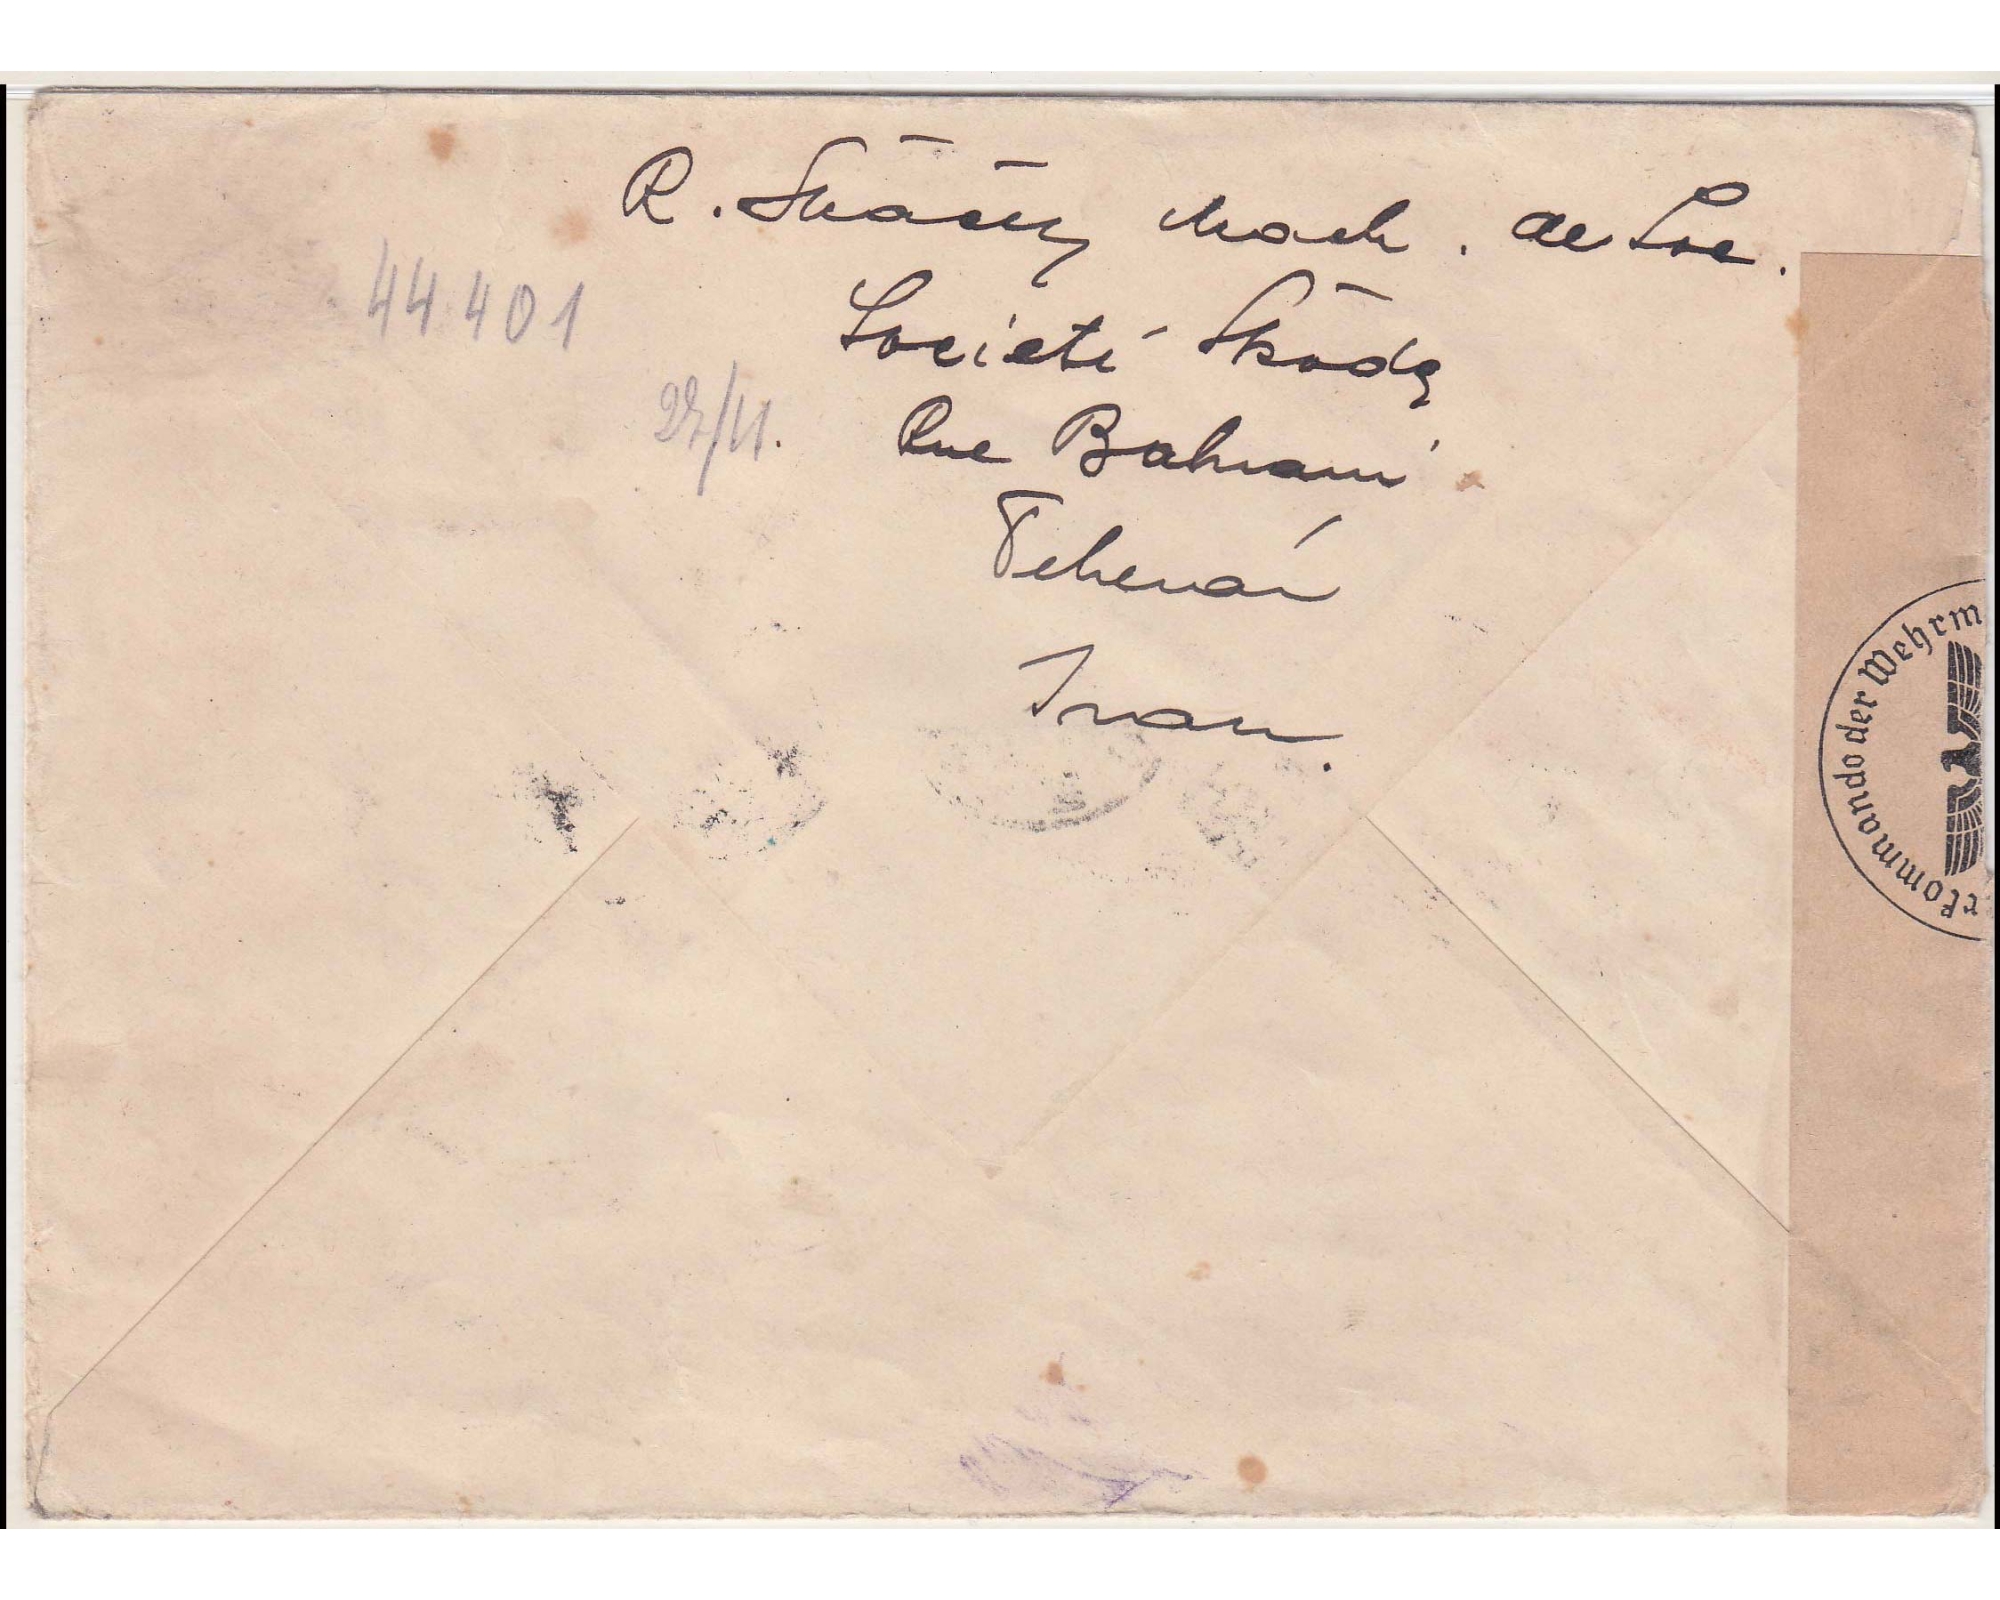 R. Mach. de Soc.
Societé Škoda
Rue Bahrami
Teherán
Iran.
44 401
22/11.
rkommando der Wehrm